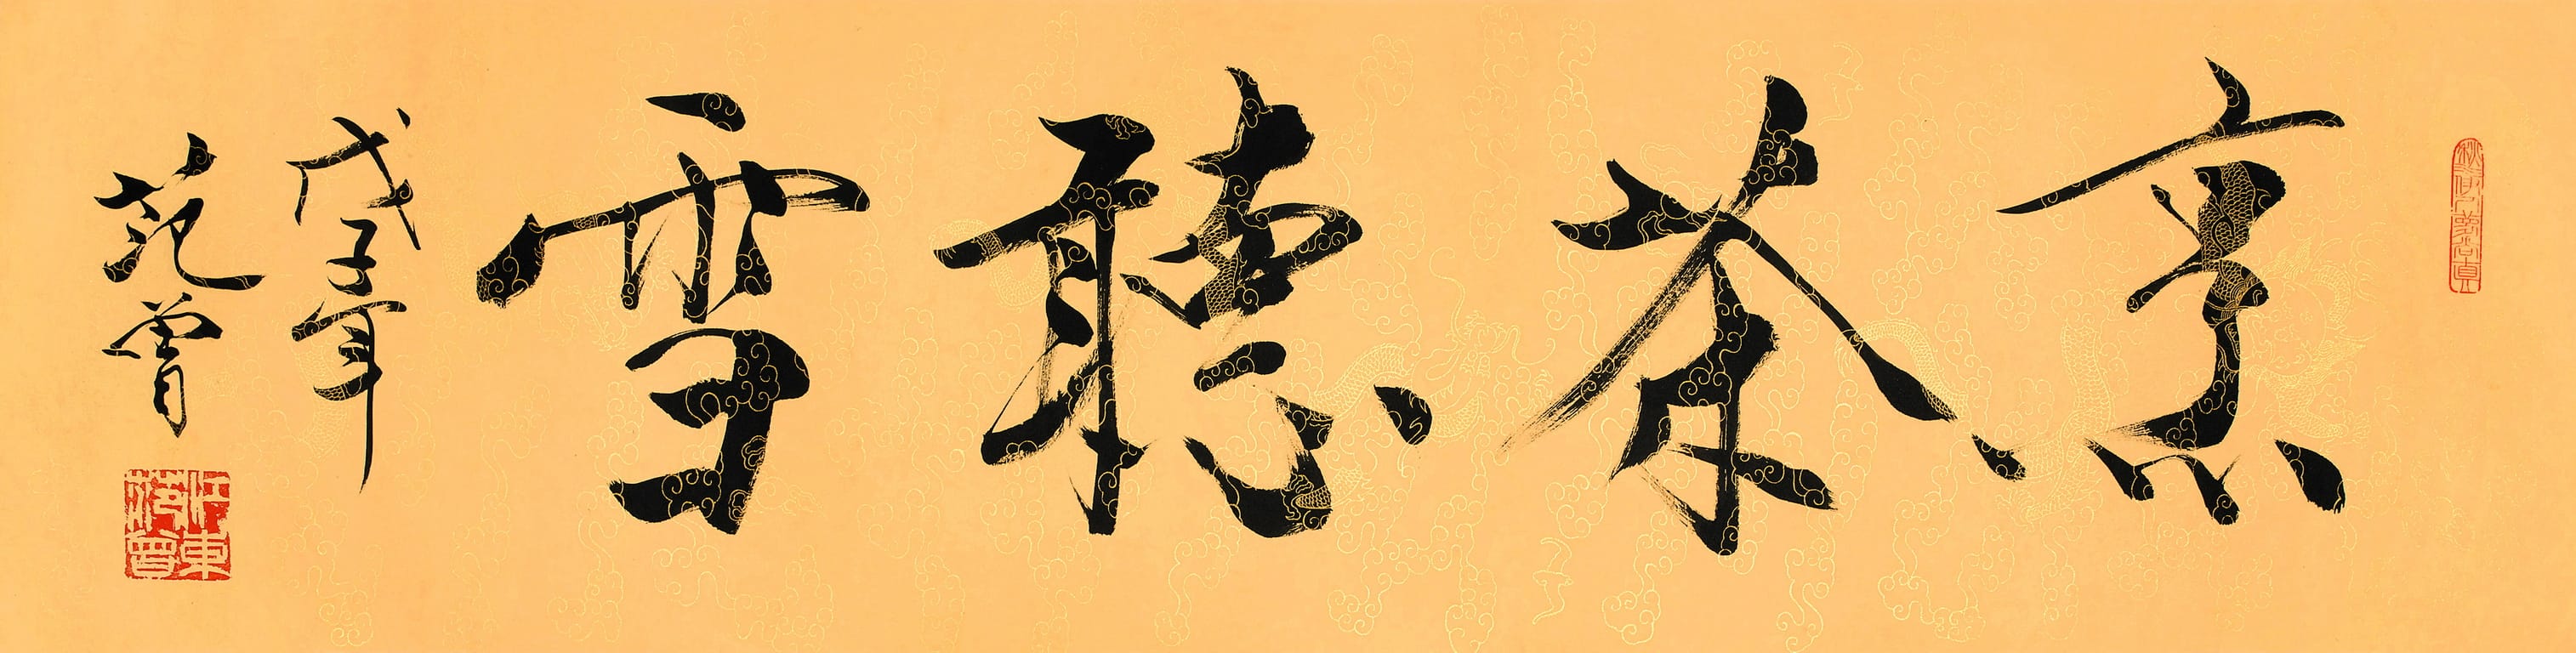 烹茶聽雪
戊子年
范曾
江東范曾